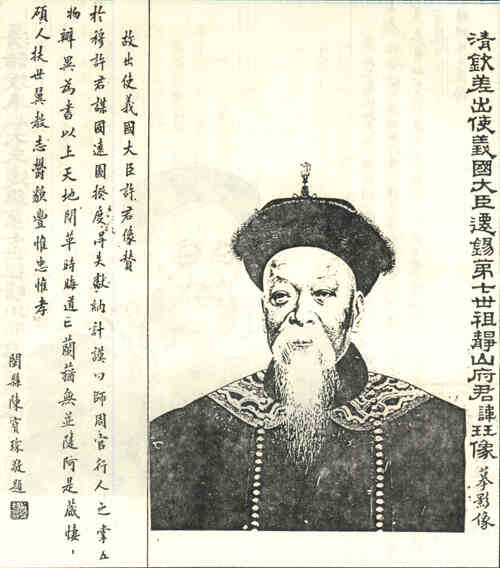 清欽差出使義國大臣遷錫第七世祖靜山府君諱珏像
摹影像
故出使義國大臣許君像贊
於穆許君謀國遠圖揆度得失獻納訏謨以師周官行人之掌五
物辨異為書以上天地閉革時晦道亡蘭蕕無並陵阿是藏悽、
碩人扶世翼教志鬱貌豐惟忠惟孝
閩縣陳寶琛敬題